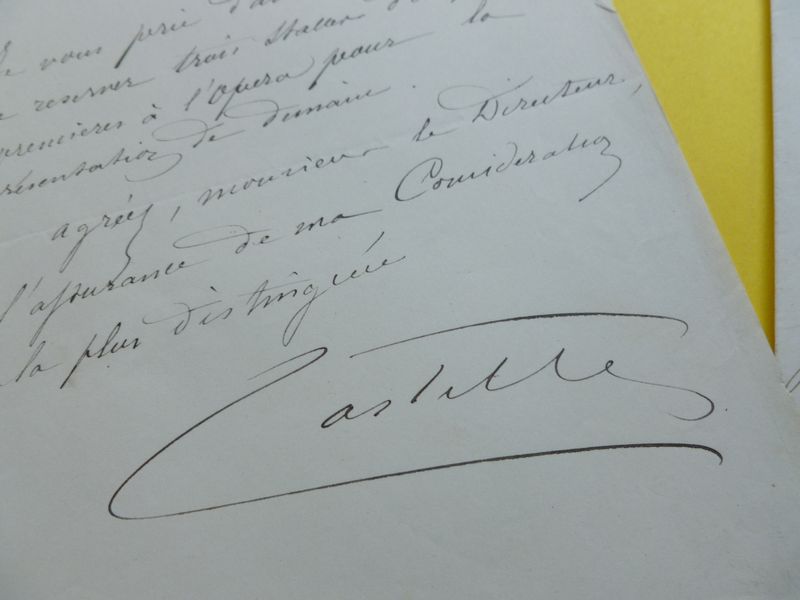 Je vous prie d'a
reserver trois stalles de
premieres à l'Opera pour la
résentation de demain.
agréez, monsieur le Directeur,
l'assurance de ma Consideration
la plus distinguée